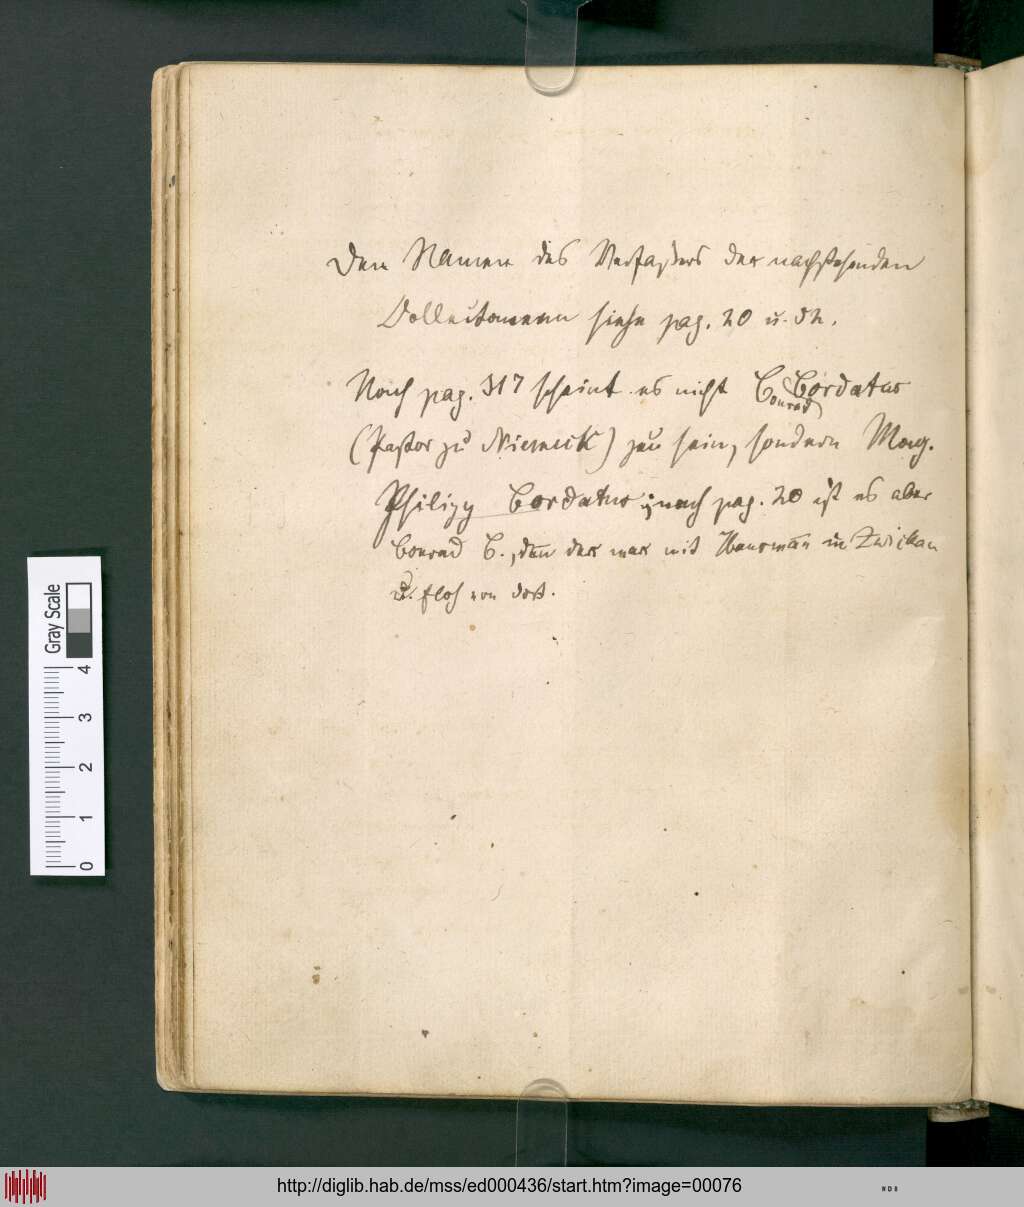 Den Namen des Verfassers der nachstehenden
Collectaneen siehe pag. 20 u. 52.
Nach pag. 317 scheint es nicht C Cordatus
Conrad
(Pastor zu Niemeck) zu sein, sondern Mag.
Philipp Cordatus; nach pag. 20 ist es aber
Conrad C., den der war mit Hausman in Zwickau
u. floh von dort.
Gray Scale
4
3
2
1
0
http://diglib.hab.de/mss/ed000436/start.htm?image=00076